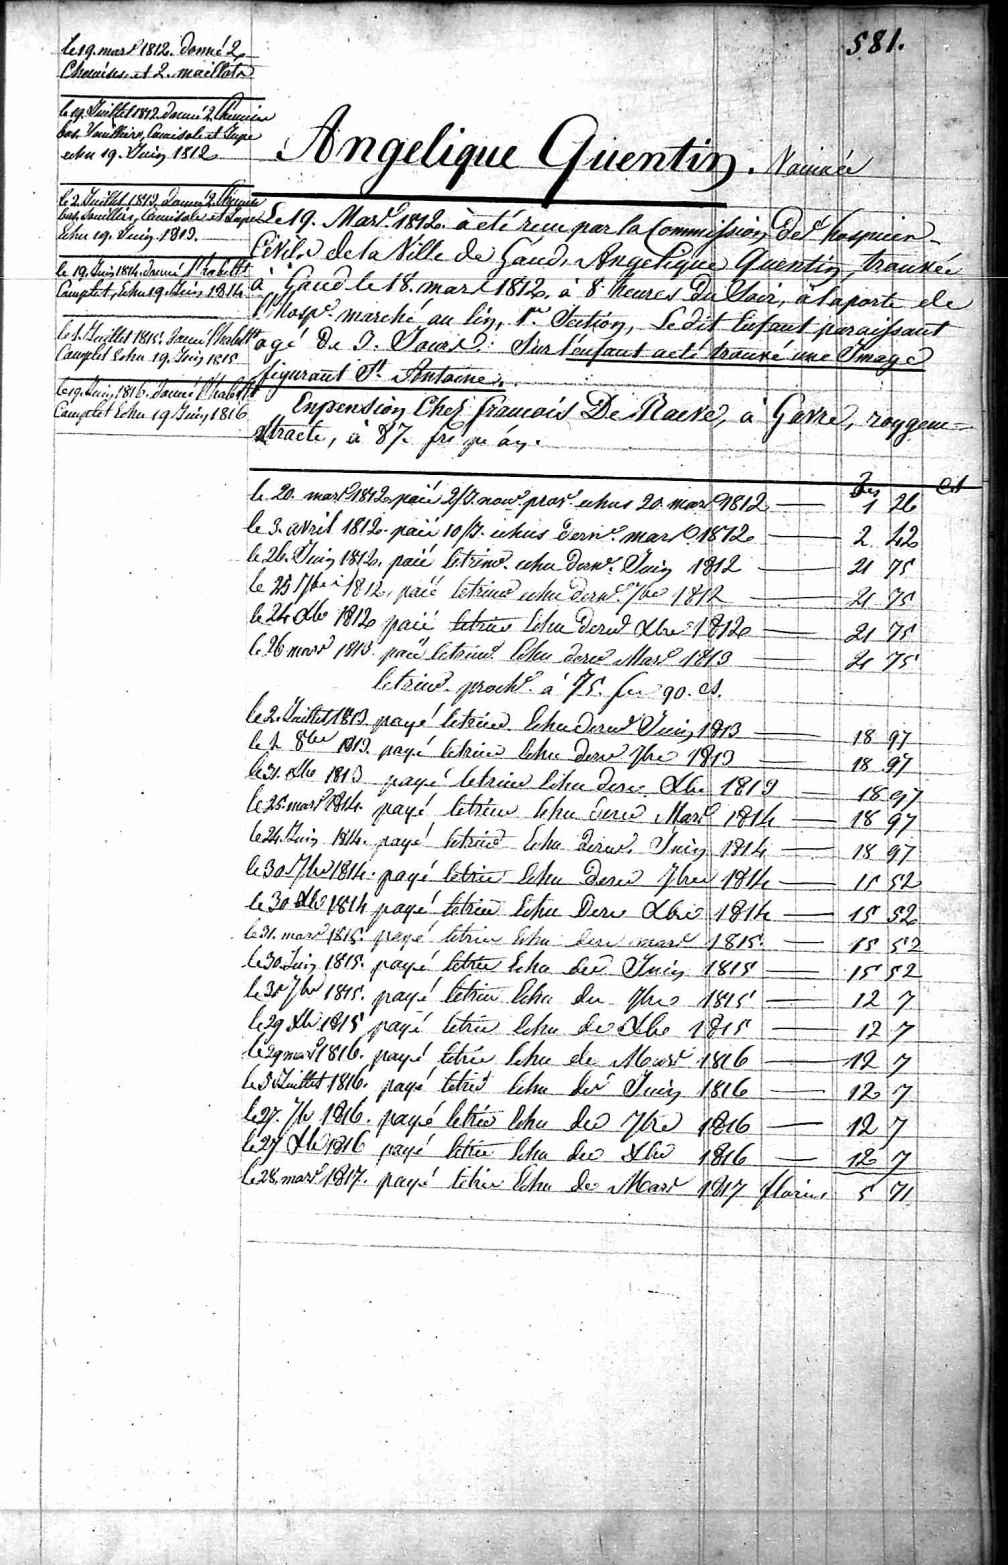 581.
le 19. mars 1812. donné 2
Chemises et 2. maillots
le 19. Juillet 1812. donné 2 Chemise
bas, Souilliers, Camisole et Jupe
echu 19. Juin 1812
le 2. Juillet 1813. donné 2 Chemise
bas, Souilliers, Camisole et Jupe
Echu 19. Juin. 1813.
le 19. Juin 1814. donné
Complet, Echu 19. Juin 1814.
Juillet 1815. donné
Complet Echu 19. Juin 1815
le 19. Juin, 1816. donné
Complet Echu 19. Juin, 1816
Angelique Quentin.
Le 19. Mars 1812. à eté reçue par la Commission Des hospices
Civils de la Ville de Gand, Angelique Quentin, trouvée
à Gand le 18. mars 1812, à 8 heures Du Soir, à la porte de
l'hosp. marché au lin, 1re Section, Ledit Enfant paraissant
agé De 3. Jours. Sur l'enfant a eté trouvé une Image
figurant St. Antoine.
En pension Chez francois De Raeve, à Gavre,
straete, à 87. frs par an.
frs Cs
le 20. mars 1812 paié echus 20. mars 1812 — 1 26
le 3. avril 1812. paié 10/J. echus dern. mars 1812 — 2 42
le 26. Juin 1812, paié le trim. echu dern. Juin 1812 — 21 75
le 25 7bre 1812, paié le trim echu dern. 7bre 1812 — 21 75
le 24 Xbre 1812 paié le trim Echu dern Xbre 1812 — 21 75
le 26 mars 1813. paié le trim. Echu dern Mars 1813 — 21 75
le trim. proch. à 75. frs 90. cs.
le 2. Juillet 1813. payé le trim. Echu dern Juin 1813 — 18 97
le 2 8bre 1813. payé le trim Echu dern 7bre 1813 — 18 97
le 31. Xbre 1813 payé le trim Echu dern Xbre 1813 — 18 97
le 25. mars 1814. payé le trim Echu dern Mars 1814 — 18 97
le 24. Juin 1814. payé le trim Echu dern. Juin 1814 — 18 97
le 30 7bre 1814. payé le trim Echu dern 7bre 1814 — 15 52
le 30 Xbre 1814 payé le trim Echu Dern Xbre 1814 — 15 52
le 31. mars 1815. payé le trim Echu dern mars 1815. — 15 52
le 30 Juin 1815. payé le trim Echu der Juin 1815 — 15 52
le 30 7bre 1815. payé le trim Echu der 7bre 1815 — 12 7
le 29 Xbre 1815 payé le trim Echu de Xbre 1815 — 12 7
le 29 mars 1816. payé le trim Echu de Mars 1816 — 12 7
le 5 Juillet 1816. payé le trim Echu der Juin 1816 — 12 7
le 27. 7bre 1816. payé le trim Echu der 7bre 1816 — 12 7
le 27 Xbre 1816 payé le trim Echu der Xbre 1816 — 12 7
le 28. mars 1817. payé le trim Echu de Mars 1817 florins 5 71